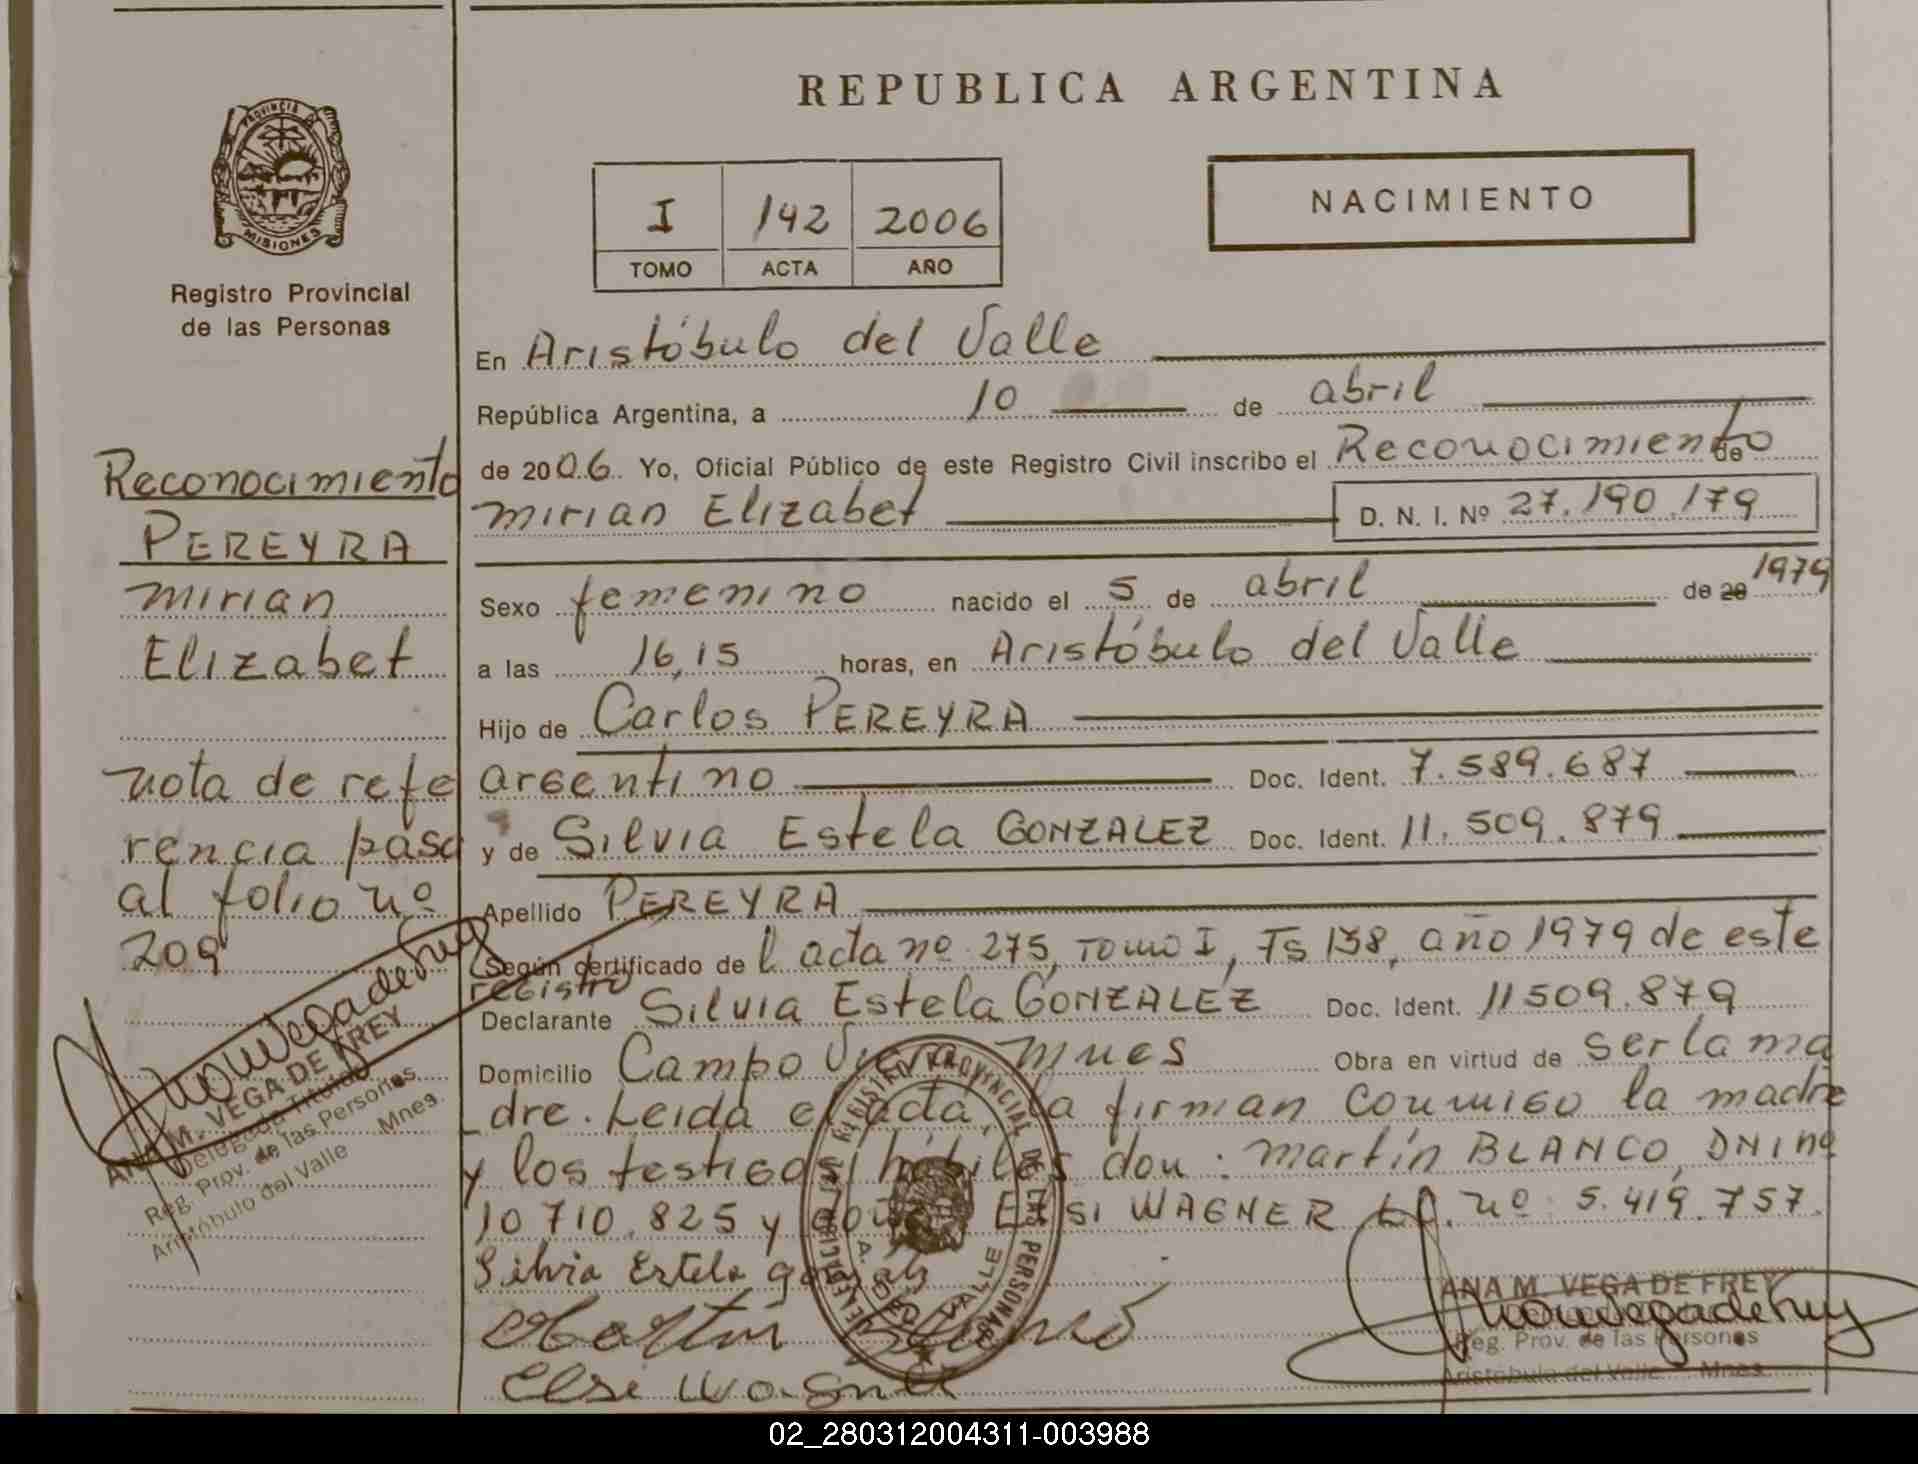 PROVINCIA DE
MISIONES
Registro Provincial
de las Personas
Reconocimiento
PEREYRA
Mirian
Elizabet
nota de refe
rencia pasa
al folio nº
209
ANA M. VEGA DE FREY
Delegada Titular
Reg. Prov. de las Personas
Aristóbulo del Valle Mnes.
REPUBLICA ARGENTINA
I 142 2006
TOMO ACTA AÑO
NACIMIENTO
En Aristóbulo del Valle
República Argentina, a 10 de abril
de 2006. Yo, Oficial Público de este Registro Civil inscribo el Reconocimiento de
Mirian Elizabet D. N. I. Nº 27.190.179
Sexo femenino nacido el 5 de abril de 20 1979
a las 16,15 horas, en Aristóbulo del Valle
Hijo de Carlos PEREYRA
argentino Doc. Ident. 7.589.687
y de Silvia Estela GONZALEZ Doc. Ident. 11.509.879
Apellido PEREYRA
Según certificado del acta nº 275, Tomo I, Fs 138, año 1979 de este
registro
Declarante Silvia Estela GONZALEZ Doc. Ident. 11509.879
Domicilio Campo Viera Mnes Obra en virtud de ser la ma
dre. Leida el acta, la firman conmigo la madre
y los testigos hábiles don: Martín BLANCO, DNI nº
10710.825 y doña ELSI WAGNER LC. nº 5.419.757.
Silvia Estela
Martin Blanco
Elsi Wagner
REGISTRO PROVINCIAL DE LAS PERSONAS
VALLE
ANA M. VEGA DE FREY
Reg. Prov. de las Personas
Aristóbulo del Valle Mnes.
02_280312004311-003988